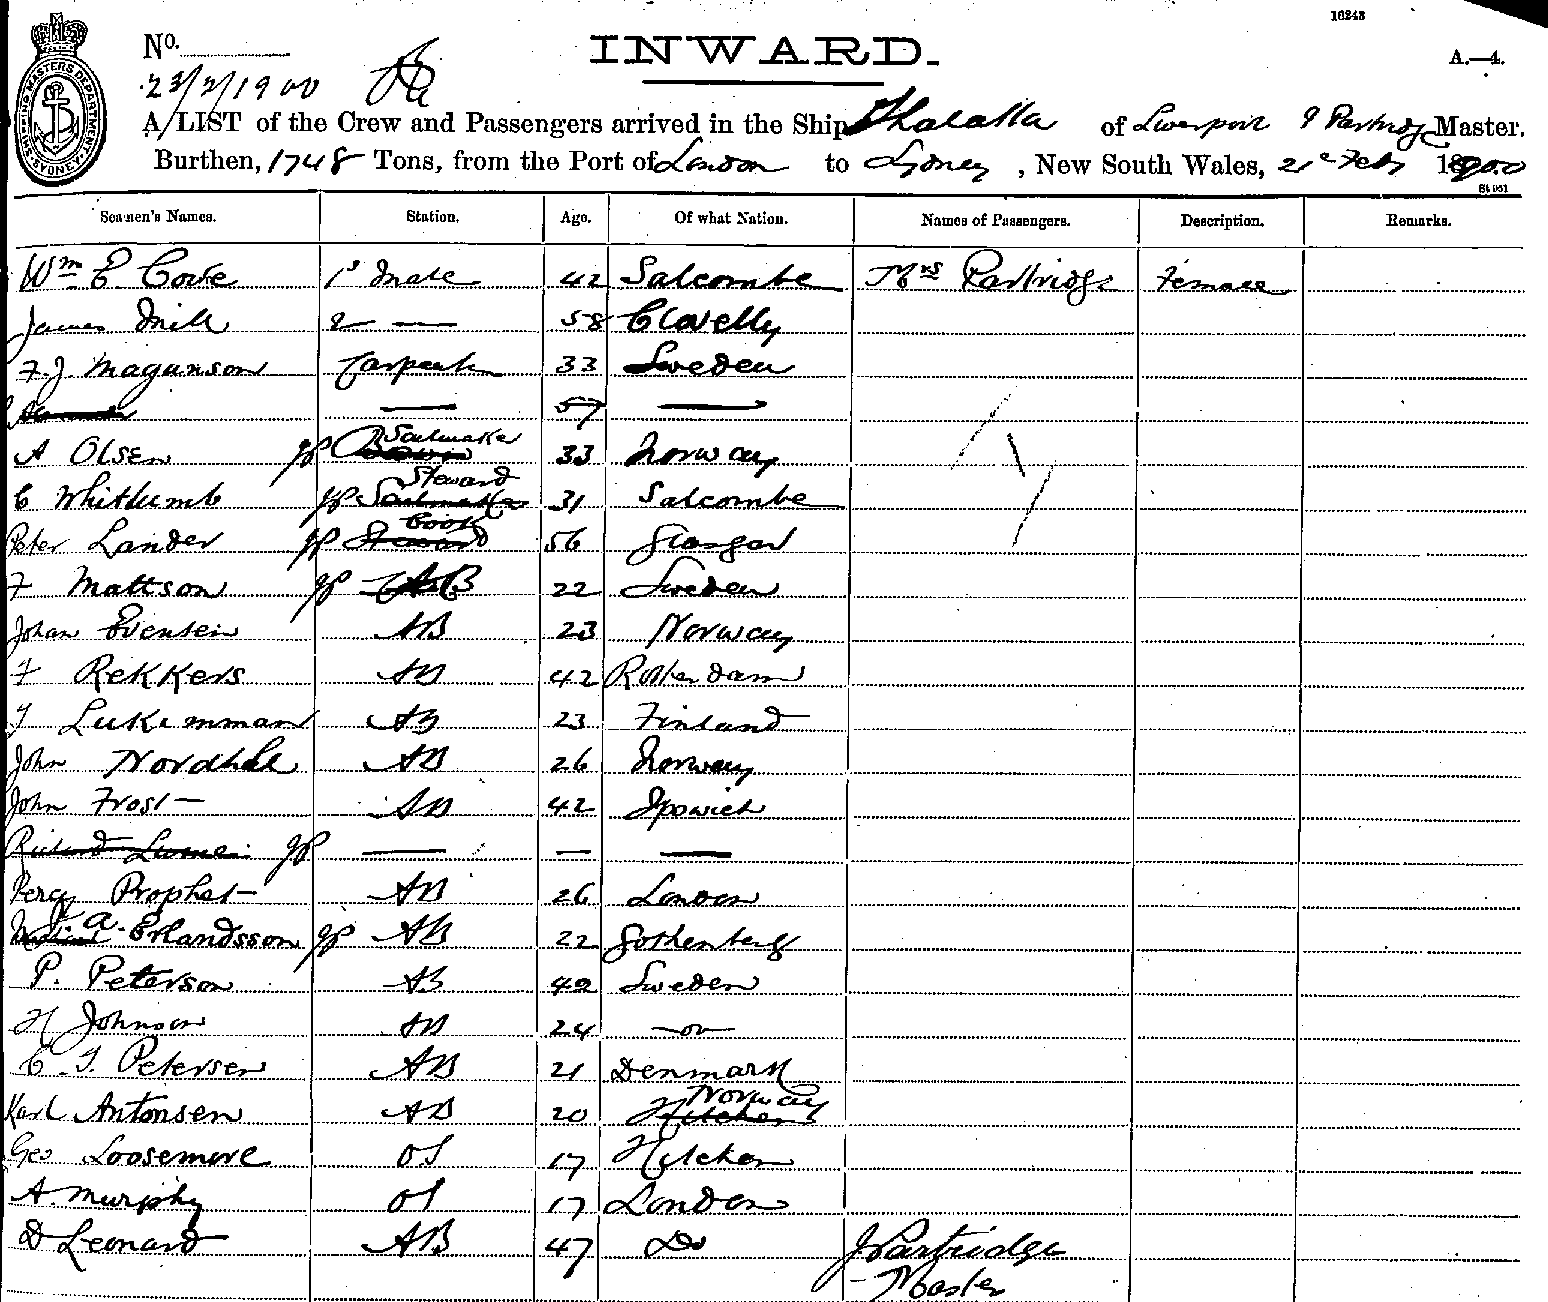 16243
No.
INWARD.
A.—4.
23/2/1900
A LIST of the Crew and Passengers arrived in the Ship Thalatta of Liverpool J Partridge Master.
Burthen, 1748 Tons, from the Port of London to Sydney, New South Wales, 21st Feby 1900
St 951
SHIPPING MASTERS DEPARTMENT SYDNEY
Seamen's Names. Station. Age. Of what Nation. Names of Passengers. Description. Remarks.
Wm E Cove 1st Mate 42 Salcombe Mrs Partridge Female
James Mill 2 — 58 Clovelly
F.J. Magunson Carpenter 33 Sweden
— 57 —
A Olsen JP Sailmaker 33 Norway
C Whitlumb JP Steward Sailmaker 31 Salcombe
Peter Lander JP Cook Steward 56 Glasgow
F Mattson JP AB 22 Sweden
Johan Evensein AB 23 Norway
F Rekkers AB 42 Rotterdam
J Lukinmman AB 23 Finland
John Nordhal AB 26 Norway
John Frost AB 42 Ipswich
Richard JP — — —
Percy Prophet AB 26 London
A. Erlandsson JP AB 22 Gothenburg
P. Peterson AB 42 Sweden
H Johnson AB 24 —do—
C. J. Petersen AB 21 Denmark
Karl Antonsen AB 20 Norway Hitchen
Geo Loosemore OS 17 Hitchen
A. Murphy OS 17 London
D Leonard AB 47 Do
J Partridge
Master